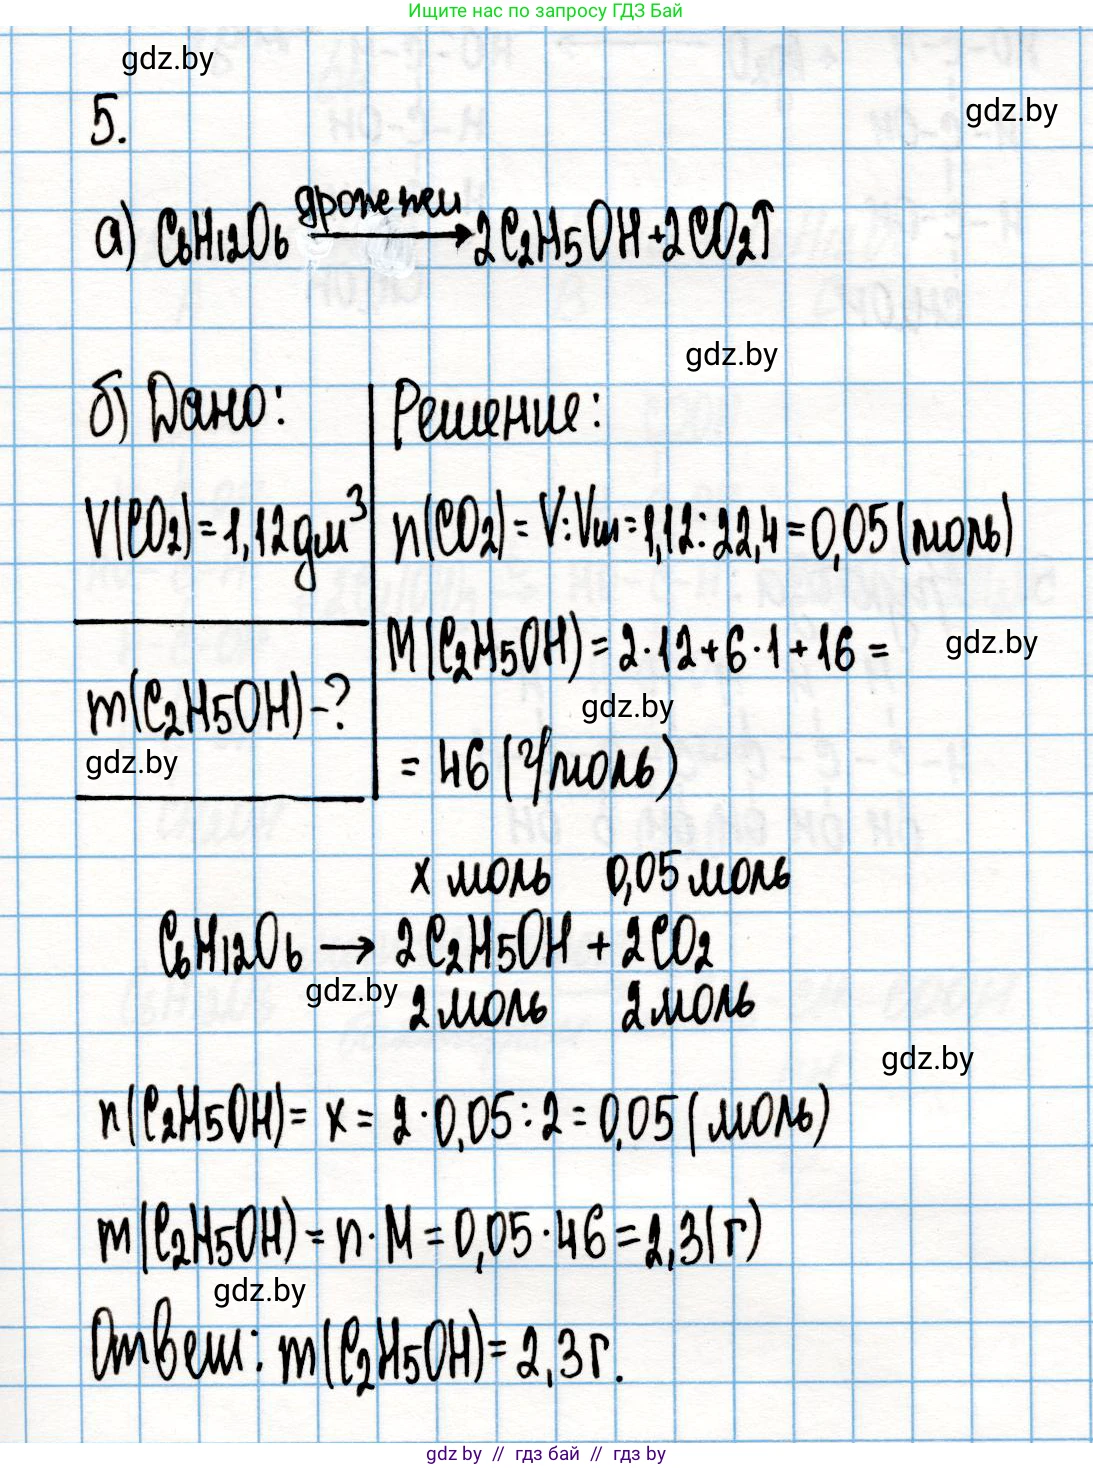 Ищите нас по запросу ГДЗ Бай
gdz.by
gdz.by
5.
а) C₆H₁₂O₆ дрожжи → 2C₂H₅OH + 2CO₂↑
gdz.by
б) Дано:
V(CO₂) = 1,12 дм³
m(C₂H₅OH) - ?
gdz.by
Решение:
n(CO₂) = V : Vm = 1,12 : 22,4 = 0,05 (моль)
M(C₂H₅OH) = 2·12 + 6·1 + 16 =
gdz.by
gdz.by
= 46 (г/моль)
x моль 0,05 моль
C₆H₁₂O₆ → 2C₂H₅OH + 2CO₂
gdz.by
2 моль 2 моль
gdz.by
n(C₂H₅OH) = x = 2 · 0,05 : 2 = 0,05 (моль)
m(C₂H₅OH) = n · M = 0,05 · 46 = 2,3 (г)
gdz.by
Ответ: m(C₂H₅OH) = 2,3 г.
gdz.by // гдз бай // гдз by